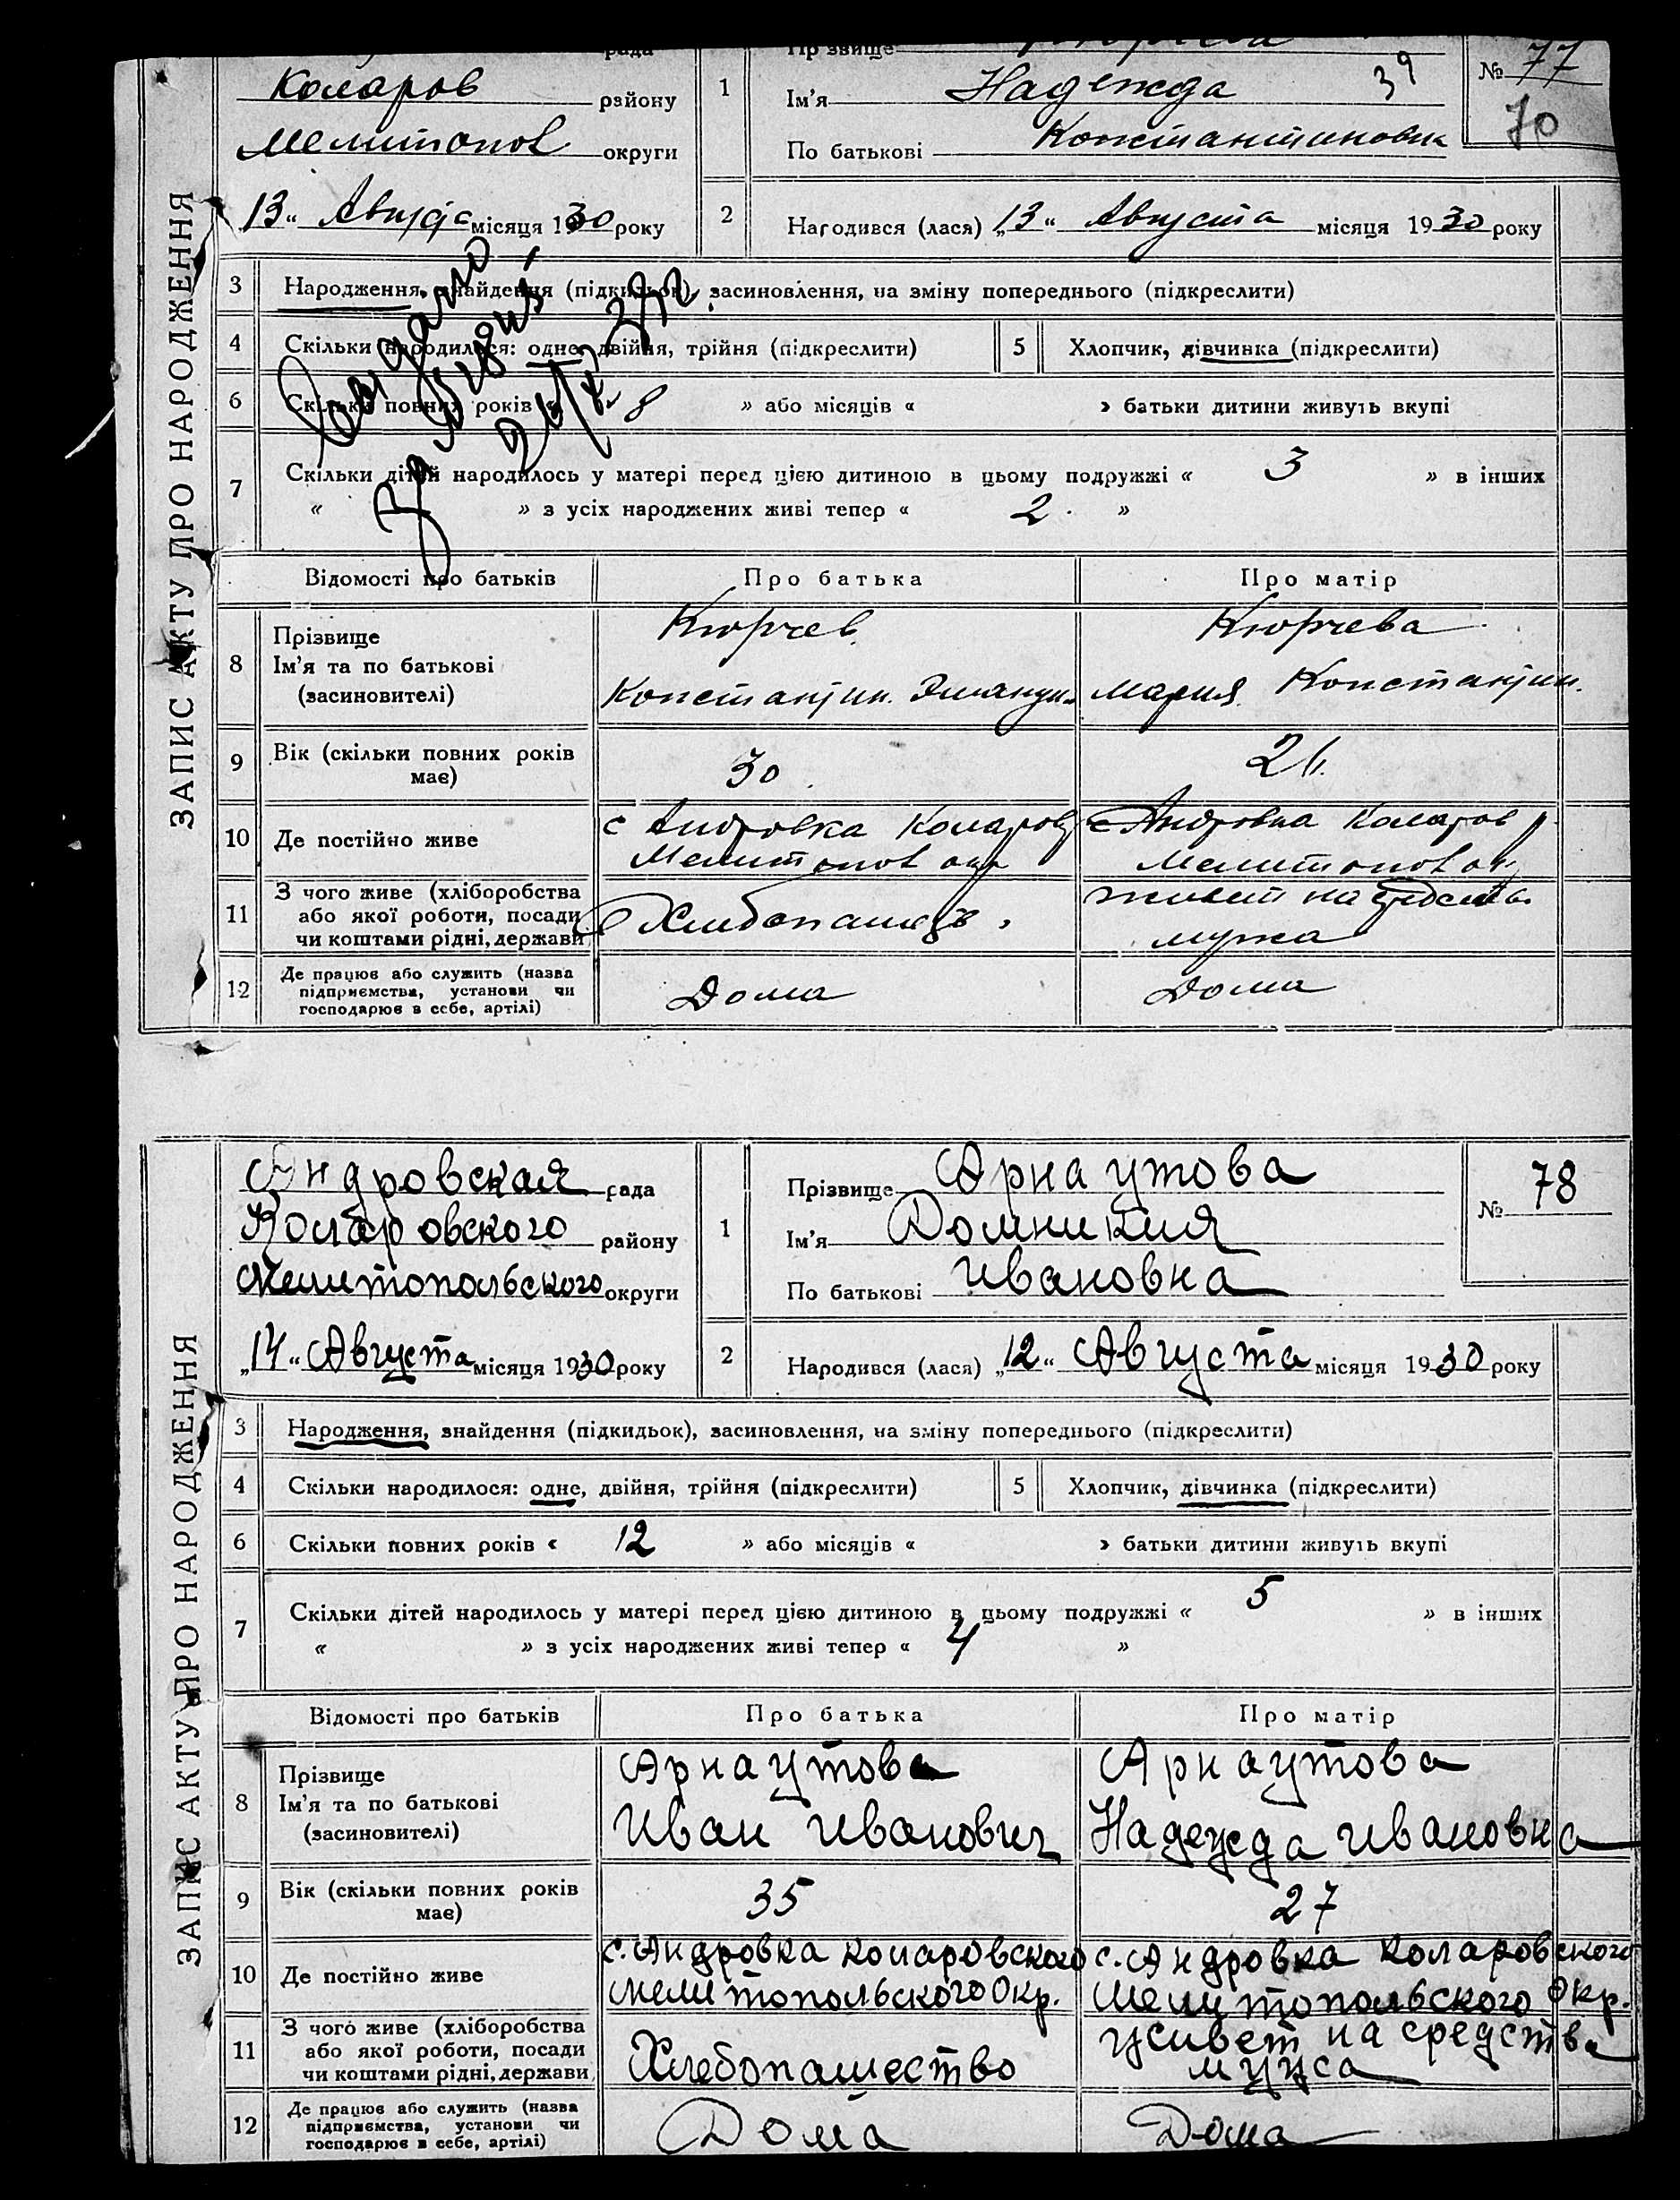 ЗАПИС АКТУ ПРО НАРОДЖЕННЯ
рада
Коларов району
Мелитопол округи
„13“ Августа місяця 1930 року
1
Прізвище
Ім'я Надежда 39
По батькові Константиновна
№ 77
70
2
Народився (лася) „13“ Августа місяця 1930 року
3 Народження, знайдення (підкидьок), засиновлення, на зміну попереднього (підкреслити)
4 Скільки народилося: одне, двійня, трійня (підкреслити)
5 Хлопчик, дівчинка (підкреслити)
6 Скільки повних років « 8 » або місяців « » батьки дитини живуть вкупі
7 Скільки дітей народилось у матері перед цією дитиною в цьому подружжі « 3 » в інших
« » з усіх народжених живі тепер « 2 »
Відомості про батьків Про батька Про матір
8 Прізвище
Ім'я та по батькові
(засиновителі)
Кюрчев
Константин.
Кюрчева
Мария Константин.
9 Вік (скільки повних років
має)
30
26
10 Де постійно живе
с Андровка Коларов
Мелитопол окр
с Андровка Коларов р.
Мелитопол ок
11 З чого живе (хліборобства
або якої роботи, посади
чи коштами рідні, держави
Хлебопашець
живет на средства
мужа
12 Де працює або служить (назва
підприємства, установи чи
господарює в себе, артілі)
Дома
Дома
ЗАПИС АКТУ ПРО НАРОДЖЕННЯ
Андровская рада
Коларовского району
Мелитопольского округи
„14“ Августа місяця 1930 року
1
Прізвище Арнаутова
Ім'я Домникия
По батькові Ивановна
№ 78
2
Народився (лася) „12“ Августа місяця 1930 року
3 Народження, знайдення (підкидьок), засиновлення, на зміну попереднього (підкреслити)
4 Скільки народилося: одне, двійня, трійня (підкреслити)
5 Хлопчик, дівчинка (підкреслити)
6 Скільки повних років « 12 » або місяців « » батьки дитини живуть вкупі
7 Скільки дітей народилось у матері перед цією дитиною в цьому подружжі « 5 » в інших
« » з усіх народжених живі тепер « 4 »
Відомості про батьків Про батька Про матір
8 Прізвище
Ім'я та по батькові
(засиновителі)
Арнаутова
Иван Иванович
Арнаутова
Надежда Ивановна
9 Вік (скільки повних років
має)
35
27
10 Де постійно живе
с. Андровка Коларовского
Мелитопольского Окр.
с. Андровка Коларовского
Мелитопольского Окр.
11 З чого живе (хліборобства
або якої роботи, посади
чи коштами рідні, держави
Хлебопашество
живет на средства
мужа
12 Де працює або служить (назва
підприємства, установи чи
господарює в себе, артілі)
Дома
Дома